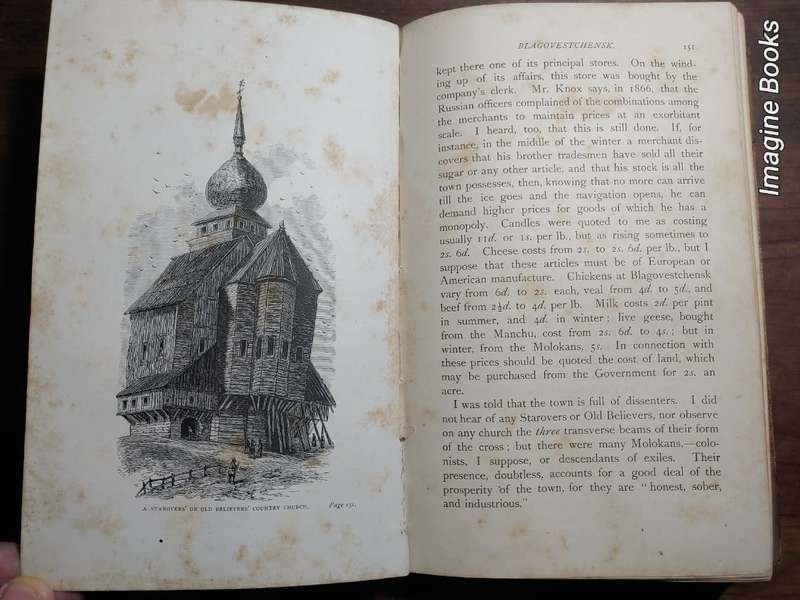 A STAROVERS' OR OLD BELIEVERS' COUNTRY CHURCH. Page 151.
BLAGOVESTCHENSK. 151
kept there one of its principal stores. On the wind-
ing up of its affairs, this store was bought by the
company's clerk. Mr. Knox says, in 1866, that the
Russian officers complained of the combinations among
the merchants to maintain prices at an exorbitant
scale. I heard, too, that this is still done. If, for
instance, in the middle of the winter a merchant dis-
covers that his brother tradesmen have sold all their
sugar or any other article, and that his stock is all the
town possesses, then, knowing that no more can arrive
till the ice goes and the navigation opens, he can
demand higher prices for goods of which he has a
monopoly. Candles were quoted to me as costing
usually 11d. or 1s. per lb., but as rising sometimes to
2s. 6d. Cheese costs from 2s. to 2s. 6d. per lb., but I
suppose that these articles must be of European or
American manufacture. Chickens at Blagovestchensk
vary from 6d. to 2s. each, veal from 4d. to 5d., and
beef from 2½d. to 4d. per lb. Milk costs 2d. per pint
in summer, and 4d. in winter; live geese, bought
from the Manchu, cost from 2s. 6d. to 4s.; but in
winter, from the Molokans, 5s. In connection with
these prices should be quoted the cost of land, which
may be purchased from the Government for 2s. an
acre.
I was told that the town is full of dissenters. I did
not hear of any Starovers or Old Believers, nor observe
on any church the three transverse beams of their form
of the cross; but there were many Molokans,—colo-
nists, I suppose, or descendants of exiles. Their
presence, doubtless, accounts for a good deal of the
prosperity of the town, for they are "honest, sober,
and industrious."
Imagine Books